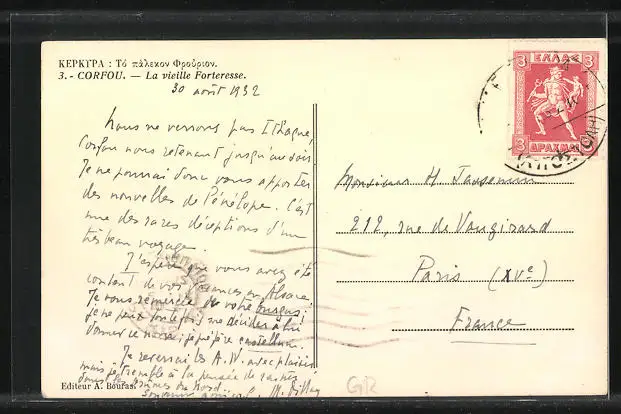 ΚΕΡΚΥΡΑ : Τό πάλεκον Φρούριον.
3. - CORFOU. — La vieille Forteresse.
30 août 1932
Nous ne verrons pas Ithaque,
Corfou nous retenant jusqu'au soir.
Je ne pourrai donc vous apporter
des nouvelles de Pénélope. C'est
une des rares déceptions d'un
très beau voyage.
J'espère que vous avez été
content de vos vacances en Alsace.
Je vous remercie de votre
je ne peux toutefois me décider à lui
donner ce nom : je préfère castellum.
Je reverrai les A.W. avec plaisir
mais je tremble à la pensée de
dans les brumes du Nord..
Editeur A. Bouras.
ΕΛΛΑΣ
3 3
3 3
ΔΡΑΧΜΑΙ
Monsieur H
212, rue de Vaugirard
Paris (XVe)
France
GR